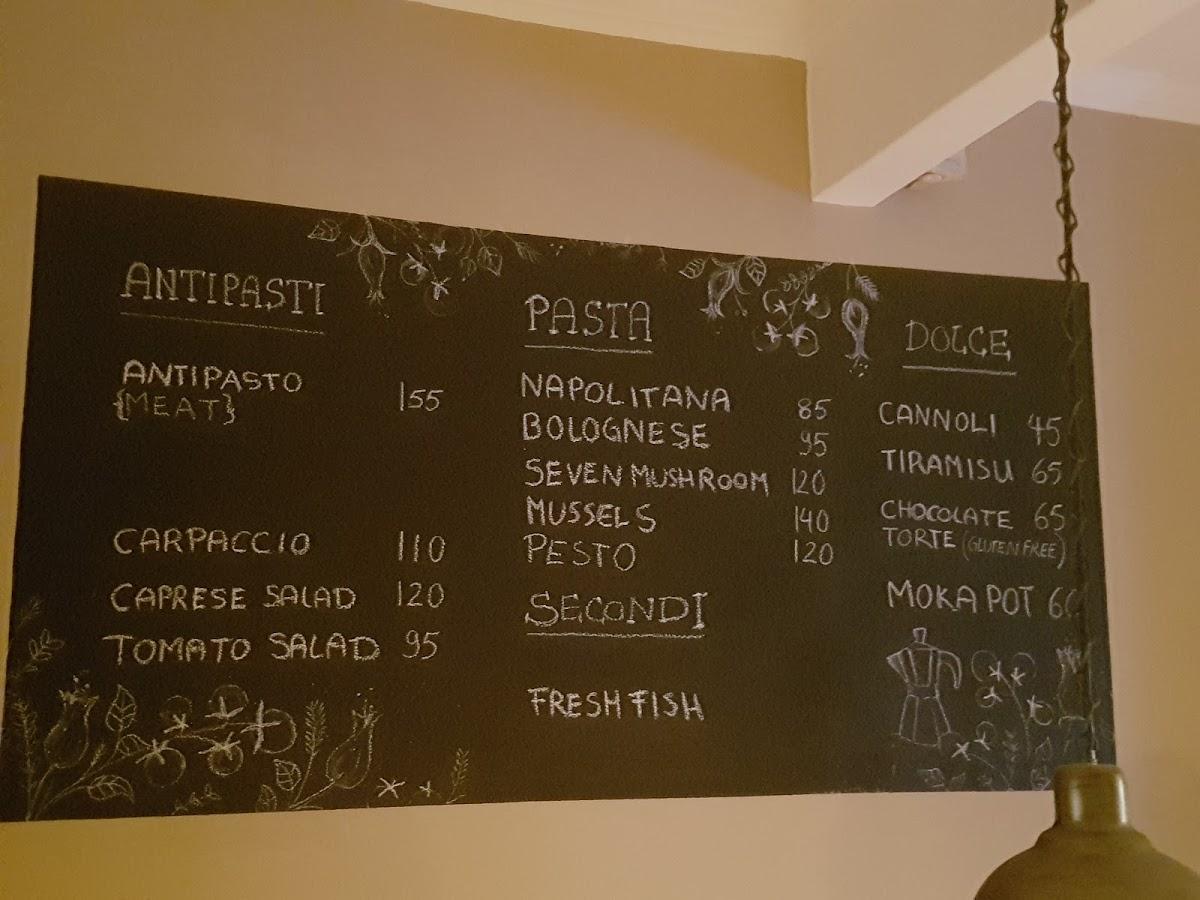 ANTIPASTI
ANTIPASTO
{MEAT} 155
CARPACCIO 110
CAPRESE SALAD 120
TOMATO SALAD 95
PASTA
NAPOLITANA 85
BOLOGNESE 95
SEVEN MUSHROOM 120
MUSSELS 140
PESTO 120
SECONDI
FRESH FISH
DOLCE
CANNOLI 45
TIRAMISU 65
CHOCOLATE 65
TORTE (GLUTEN FREE)
MOKA POT 60